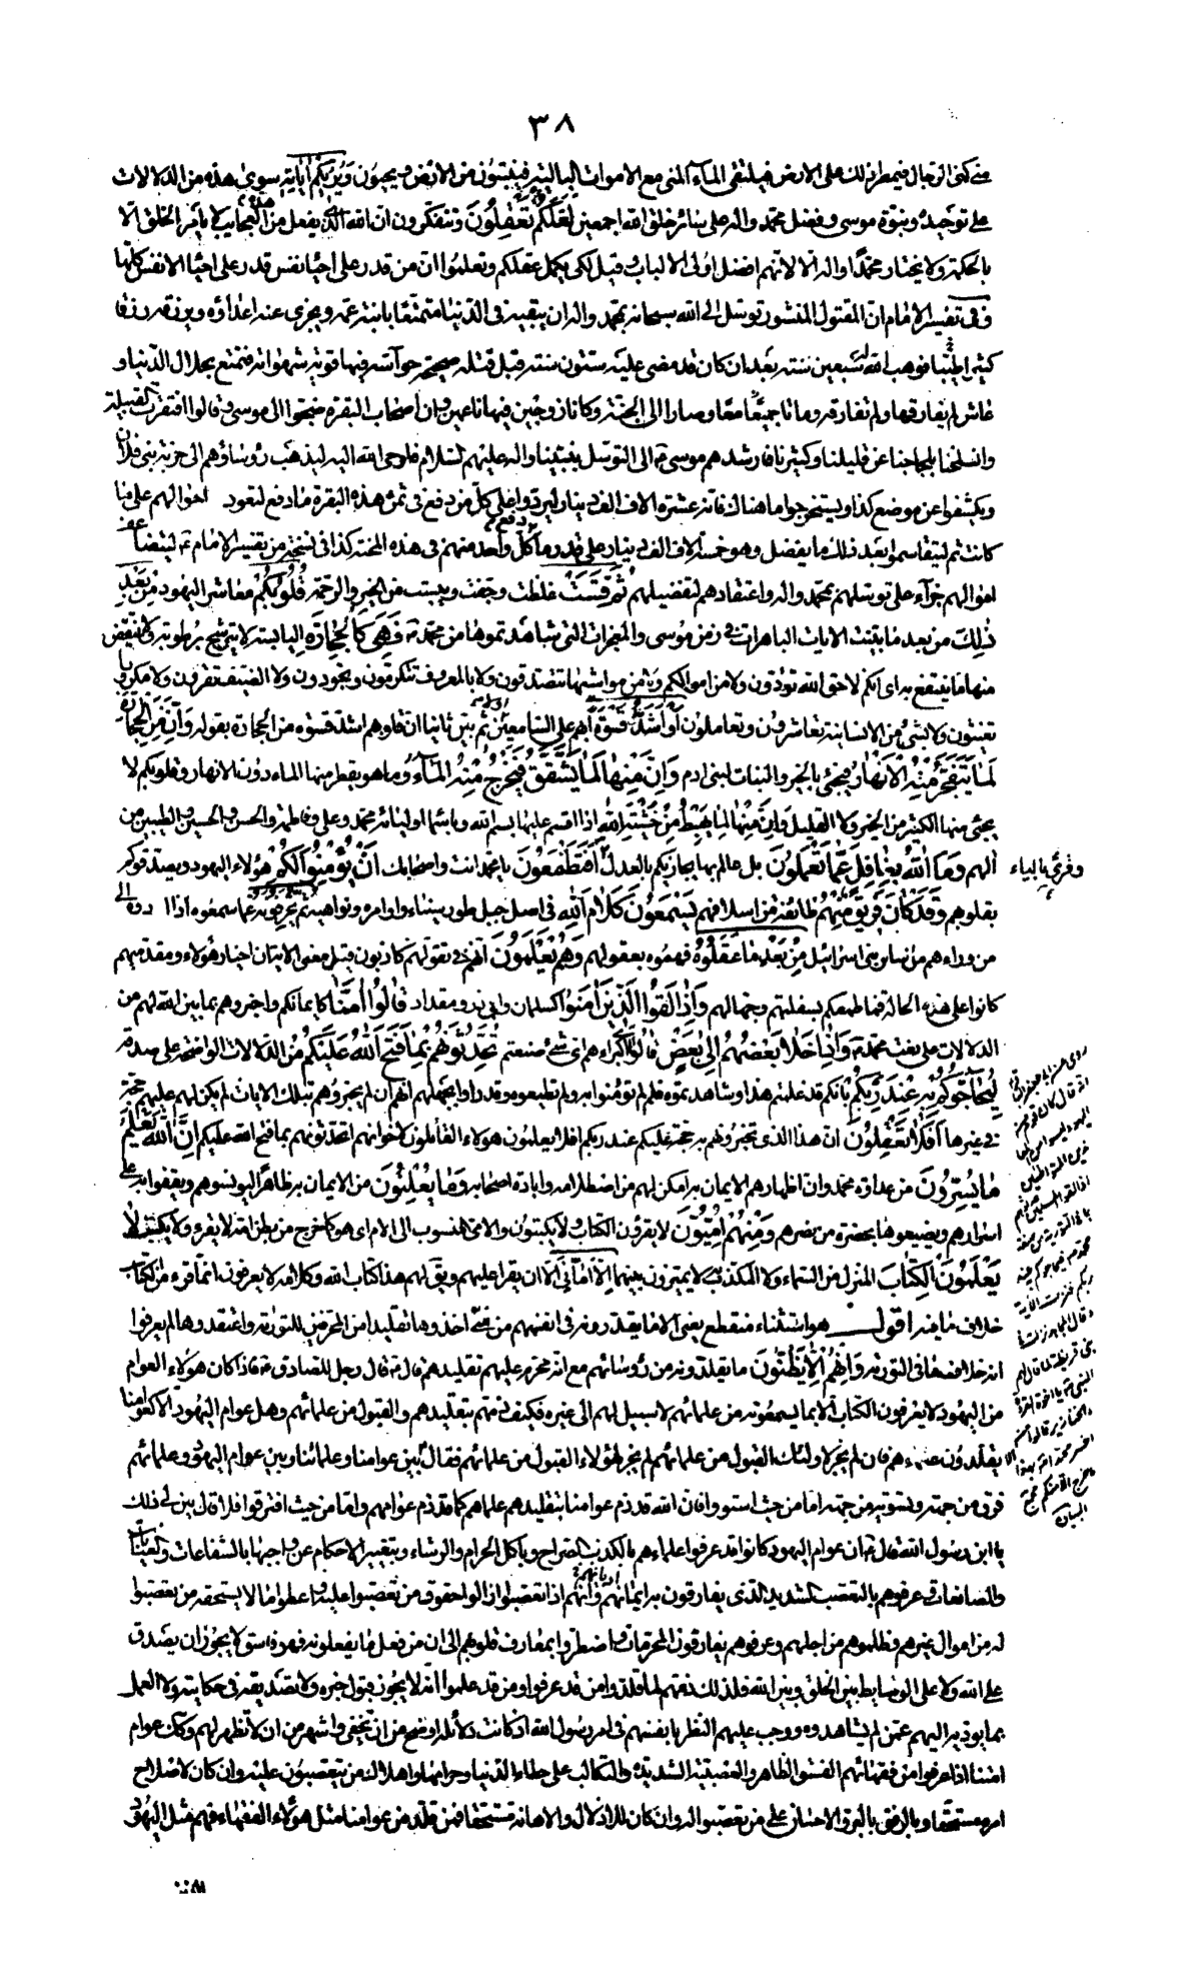 ٣٨
منى كمنى الرجال فيمطر ذلك على الارض فيلتقى الماء المنى مع الاموات البالية فينبتون من الارض ويحيون وَيُرِيكُمْ آيَاتِهِ سوى هذه من الدلالات
على توحيده ونبوة موسى وفضل محمد واله على سائر خلق الله اجمعين لَعَلَّكُمْ تَعْقِلُونَ وتتفكرون ان الله الذى يفعل هذه العجايب لا يأمر الخلق الا
بالحكمة ولا يختار محمدا واله الا لانهم افضل اولى الالباب وقيل لكى يكمل عقلكم وتعلموا ان من قدر على احياء نفس قدر على احياء الانفس كلها
وفى تفسير الامام ان المقتول المنشور توسل الى الله سبحانه بمحمد واله ان يبقيه فى الدنيا متمتعا بابنة عمه ويجزى عنه اعداؤه ويرزقه رزقا
كثيرا طيبا فوهب الله له سبعين سنة بعد ان كان قد مضى عليه ستون سنة قبل قتله صحيحة حواسه فيها قوية شهواته فتمتع بحلال الدنيا و
عاش لم يفارقها ولم تفارقه وماتا جميعا معا وصارا الى الجنة وكانا زوجين فيها ناعمين وان اصحاب البقرة ضجوا الى موسى وقالوا افتقرت القبيلة
وانسلخنا بلجاجنا عن قليلنا وكثيرنا فارشدهم موسى ع الى التوسل بنبينا واله عليهم السلام فاوحى الله اليه ليذهب رؤساؤهم الى خربة بنى فلان
ويكشفوا عن موضع كذا ويستخرجوا ما هناك فانه عشرة الاف الف دينار ليردوا على كل من دفع فى ثمن هذه البقرة ما دفع لتعود احوالهم على ما
كانت ثم ليتقاسموا بعد ذلك ما يفضل وهو خمسة الاف الف دينار على قدر ما دفع كل واحد منهم فى هذه المحنة كذا فى نسخة من تفسير الامام ع ليتضاعف
اموالهم جزاء على توسلهم بمحمد واله واعتقادهم لتفضيلهم ثُمَّ قَسَتْ غلظت وجفت ويبست من الخير والرحمة قُلُوبُكُمْ معاشر اليهود مِنْ بَعْدِ
ذَلِكَ من بعد ما تبينت الايات الباهرات فى زمن موسى والمعجزات التى شاهدتموها من محمد ص فَهِيَ كَالْحِجَارَةِ اليابسة لا ترشح برطوبة ولا ينتفض
منها ما ينتفع به اى انكم لا حق الله تؤدون ولا من اموالكم ولا من مواشيها تتصدقون ولا بالمعروف تتكرمون وتجودون ولا الضيف تقرون ولا مكروبا
تغيثون ولا بشئ من الانسانية تعاشرون وتعاملون أَوْ أَشَدُّ قَسْوَةً ابهم على السامعين اولا ثم بين ثانيا ان قلوبهم اشد قسوة من الحجارة بقوله وَإِنَّ مِنَ الْحِجَارَةِ
لَمَا يَتَفَجَّرُ مِنْهُ الْأَنْهَارُ فيجئ بالخير والنبات لبنى ادم وَإِنَّ مِنْهَا لَمَا يَشَّقَّقُ فَيَخْرُجُ مِنْهُ الْمَاءُ وما هو يقطر منها الماء دون الانهار وقلوبكم لا
يجئ منها الكثير من الخير ولا القليل وَإِنَّ مِنْهَا لَمَا يَهْبِطُ مِنْ خَشْيَةِ اللَّهِ اذا اقسم عليها بسم الله وباسماء اوليائه محمد وعلى وفاطمة والحسن والحسين والطيبين من
الهم وَمَا اللَّهُ بِغَافِلٍ عَمَّا تَعْمَلُونَ بل عالم بها يجازيكم بالعدل أَفَتَطْمَعُونَ يا محمد انت واصحابك أَنْ يُؤْمِنُوا لَكُمْ هؤلاء اليهود ويصدقوكم
وقرئ بالياء
بقلوبهم وَقَدْ كَانَ فَرِيقٌ مِنْهُمْ طائفة من اسلافهم يَسْمَعُونَ كَلَامَ اللَّهِ فى اصل جبل طور سيناء واوامره ونواهيه ثُمَّ يُحَرِّفُونَهُ عما سمعوه اذا ادوه الى
من وراءهم من سائر بنى اسرائيل مِنْ بَعْدِ مَا عَقَلُوهُ فهموه بعقولهم وَهُمْ يَعْلَمُونَ انهم فى تقولهم كاذبون قيل معنى الاية ان احبار هؤلاء ومقدميهم
كانوا على هذه الحالة فما طمعكم بسفلتهم وجهالهم وَإِذَا لَقُوا الَّذِينَ آمَنُوا كسلمان وابى ذر ومقداد قَالُوا آمَنَّا كايمانكم واخبروهم بما بين الله لهم من
الدلالات على بعث محمد ص وَإِذَا خَلَا بَعْضُهُمْ إِلَى بَعْضٍ قَالُوا اى كبراءهم اى شئ صنعتم أَتُحَدِّثُونَهُمْ بِمَا فَتَحَ اللَّهُ عَلَيْكُمْ من الدلالات الواضحة على صدقه
لِيُحَاجُّوكُمْ بِهِ عِنْدَ رَبِّكُمْ بانكم قد علمتم هذا وشاهدتموه فلم لم تؤمنوا به ولم تطيعوه وقدروا بجهلهم انهم ان لم يخبروهم بتلك الايات لم يكن لهم عليهم حجة
فى غيرها أَفَلَا تَعْقِلُونَ ان هذا الذى تخبرونهم به حجة عليكم عند ربكم افلا يعلمون هؤلاء القائلون لاخوانهم اتحدثونهم بما فتح الله عليكم إِنَّ اللَّهَ يَعْلَمُ
مَا يُسِرُّونَ من عداوة محمد وان اظهارهم الايمان به امكن لهم من اصطلامه وابادة اصحابه وَمَا يُعْلِنُونَ من الايمان به ظاهرا ليؤنسوهم ويقفوا به على
اسرارهم ويضيعوها بحضرة من يضرهم وَمِنْهُمْ أُمِّيُّونَ لا يقرؤن الكتاب ولا يكتبون والامى المنسوب الى الام اى هو كما خرج من بطن امه لا يقرء ولا يكتب لَا
يَعْلَمُونَ الْكِتَابَ المنزل من السماء ولا المكذب به لا يميزون بينهما إِلَّا أَمَانِيَّ الا ان يقرأ عليهم ويق لهم هذا كتاب الله وكلامه لا يعرفون انما قرء من الكتاب
خلاف ما فيه اقول هو استثناء منقطع يعنى الا ما يقدرونه فى انفسهم من منى اخذوها تقليدا من المحرفين للتوراة واعتقدوها لم يعرفوا
انه خلاف ما فى التوراة وَإِنْ هُمْ إِلَّا يَظُنُّونَ ما يقلدونه من رؤسائهم مع انه محرم عليهم تقليدهم قال ع قال رجل للصادق ع فاذا كان هؤلاء العوام
من اليهود لا يعرفون الكتاب الا بما يسمعونه من علمائهم لا سبيل لهم الى غيره فكيف ذمهم بتقليدهم والقبول من علمائهم وهل عوام اليهود الا كعوامنا
يقلدون علماءهم فان لم يجز لاولئك القبول من علمائهم لم يجز لهؤلاء القبول من علمائهم فقال ع بين عوامنا وعلمائنا وبين عوام اليهود وعلمائهم
فرق من جهة وتسوية من جهة اما من حيث استووا فان الله قد ذم عوامنا بتقليدهم علماءهم كما قد ذم عوامهم واما من حيث افترقوا فلا قال بين لى ذلك
يا ابن رسول الله قال ع ان عوام اليهود كانوا قد عرفوا علماءهم بالكذب الصراح وباكل الحرام والرشاء وبتغيير الاحكام عن واجبها بالشفاعات والعنايات
والمصانعات وعرفوهم بالتعصب الشديد الذى يفارقون به اديانهم وانهم اذا تعصبوا ازالوا حقوق من تعصبوا عليه واعطوا ما لا يستحقه من تعصبوا
له من اموال غيرهم وظلموهم من اجلهم وعرفوهم يفارقون المحرمات واضطروا بمعارف قلوبهم الى ان من فعل ما يفعلونه فهو فاسق لا يجوز ان يصدق
على الله ولا على الوسايط بين الخلق وبين الله فلذلك ذمهم لما قلدوا من قد عرفوا ومن قد علموا انه لا يجوز قبول خبره ولا تصديقه فى حكايته ولا العمل
بما يؤديه اليهم عمن لم يشاهدوه ووجب عليهم النظر بانفسهم فى امر رسول الله اذ كانت دلائله اوضح من ان تخفى واشهر من ان لا تظهر لهم وكك عوام
امتنا اذا عرفوا من فقهائهم الفسق الظاهر والعصبية الشديدة والتكالب على حطام الدنيا وحرامها واهلاك من يتعصبون عليه وان كان لاصلاح
امره مستحقا وبالترفق بالبر والاحسان على من تعصبوا له وان كان للاذلال والاهانة مستحقا فمن قلد من عوامنا مثل هؤلاء الفقهاء فهم مثل اليهود